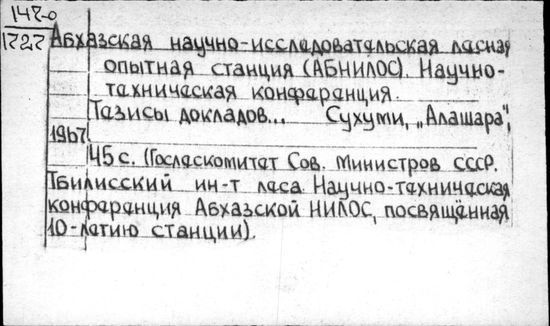 147-0
1727
Абхазская научно-исследовательская лесная
опытная станция (АБНИЛОС). Научно-
техническая конференция.
Тезисы докладов... Сухуми, „Алашара",
1967
45 с. (Гослескомитет Сов. Министров СССР.
Тбилисский ин-т леса. Научно-техническая
конференция Абхазской НИЛОС, посвящённая
10-летию станции).